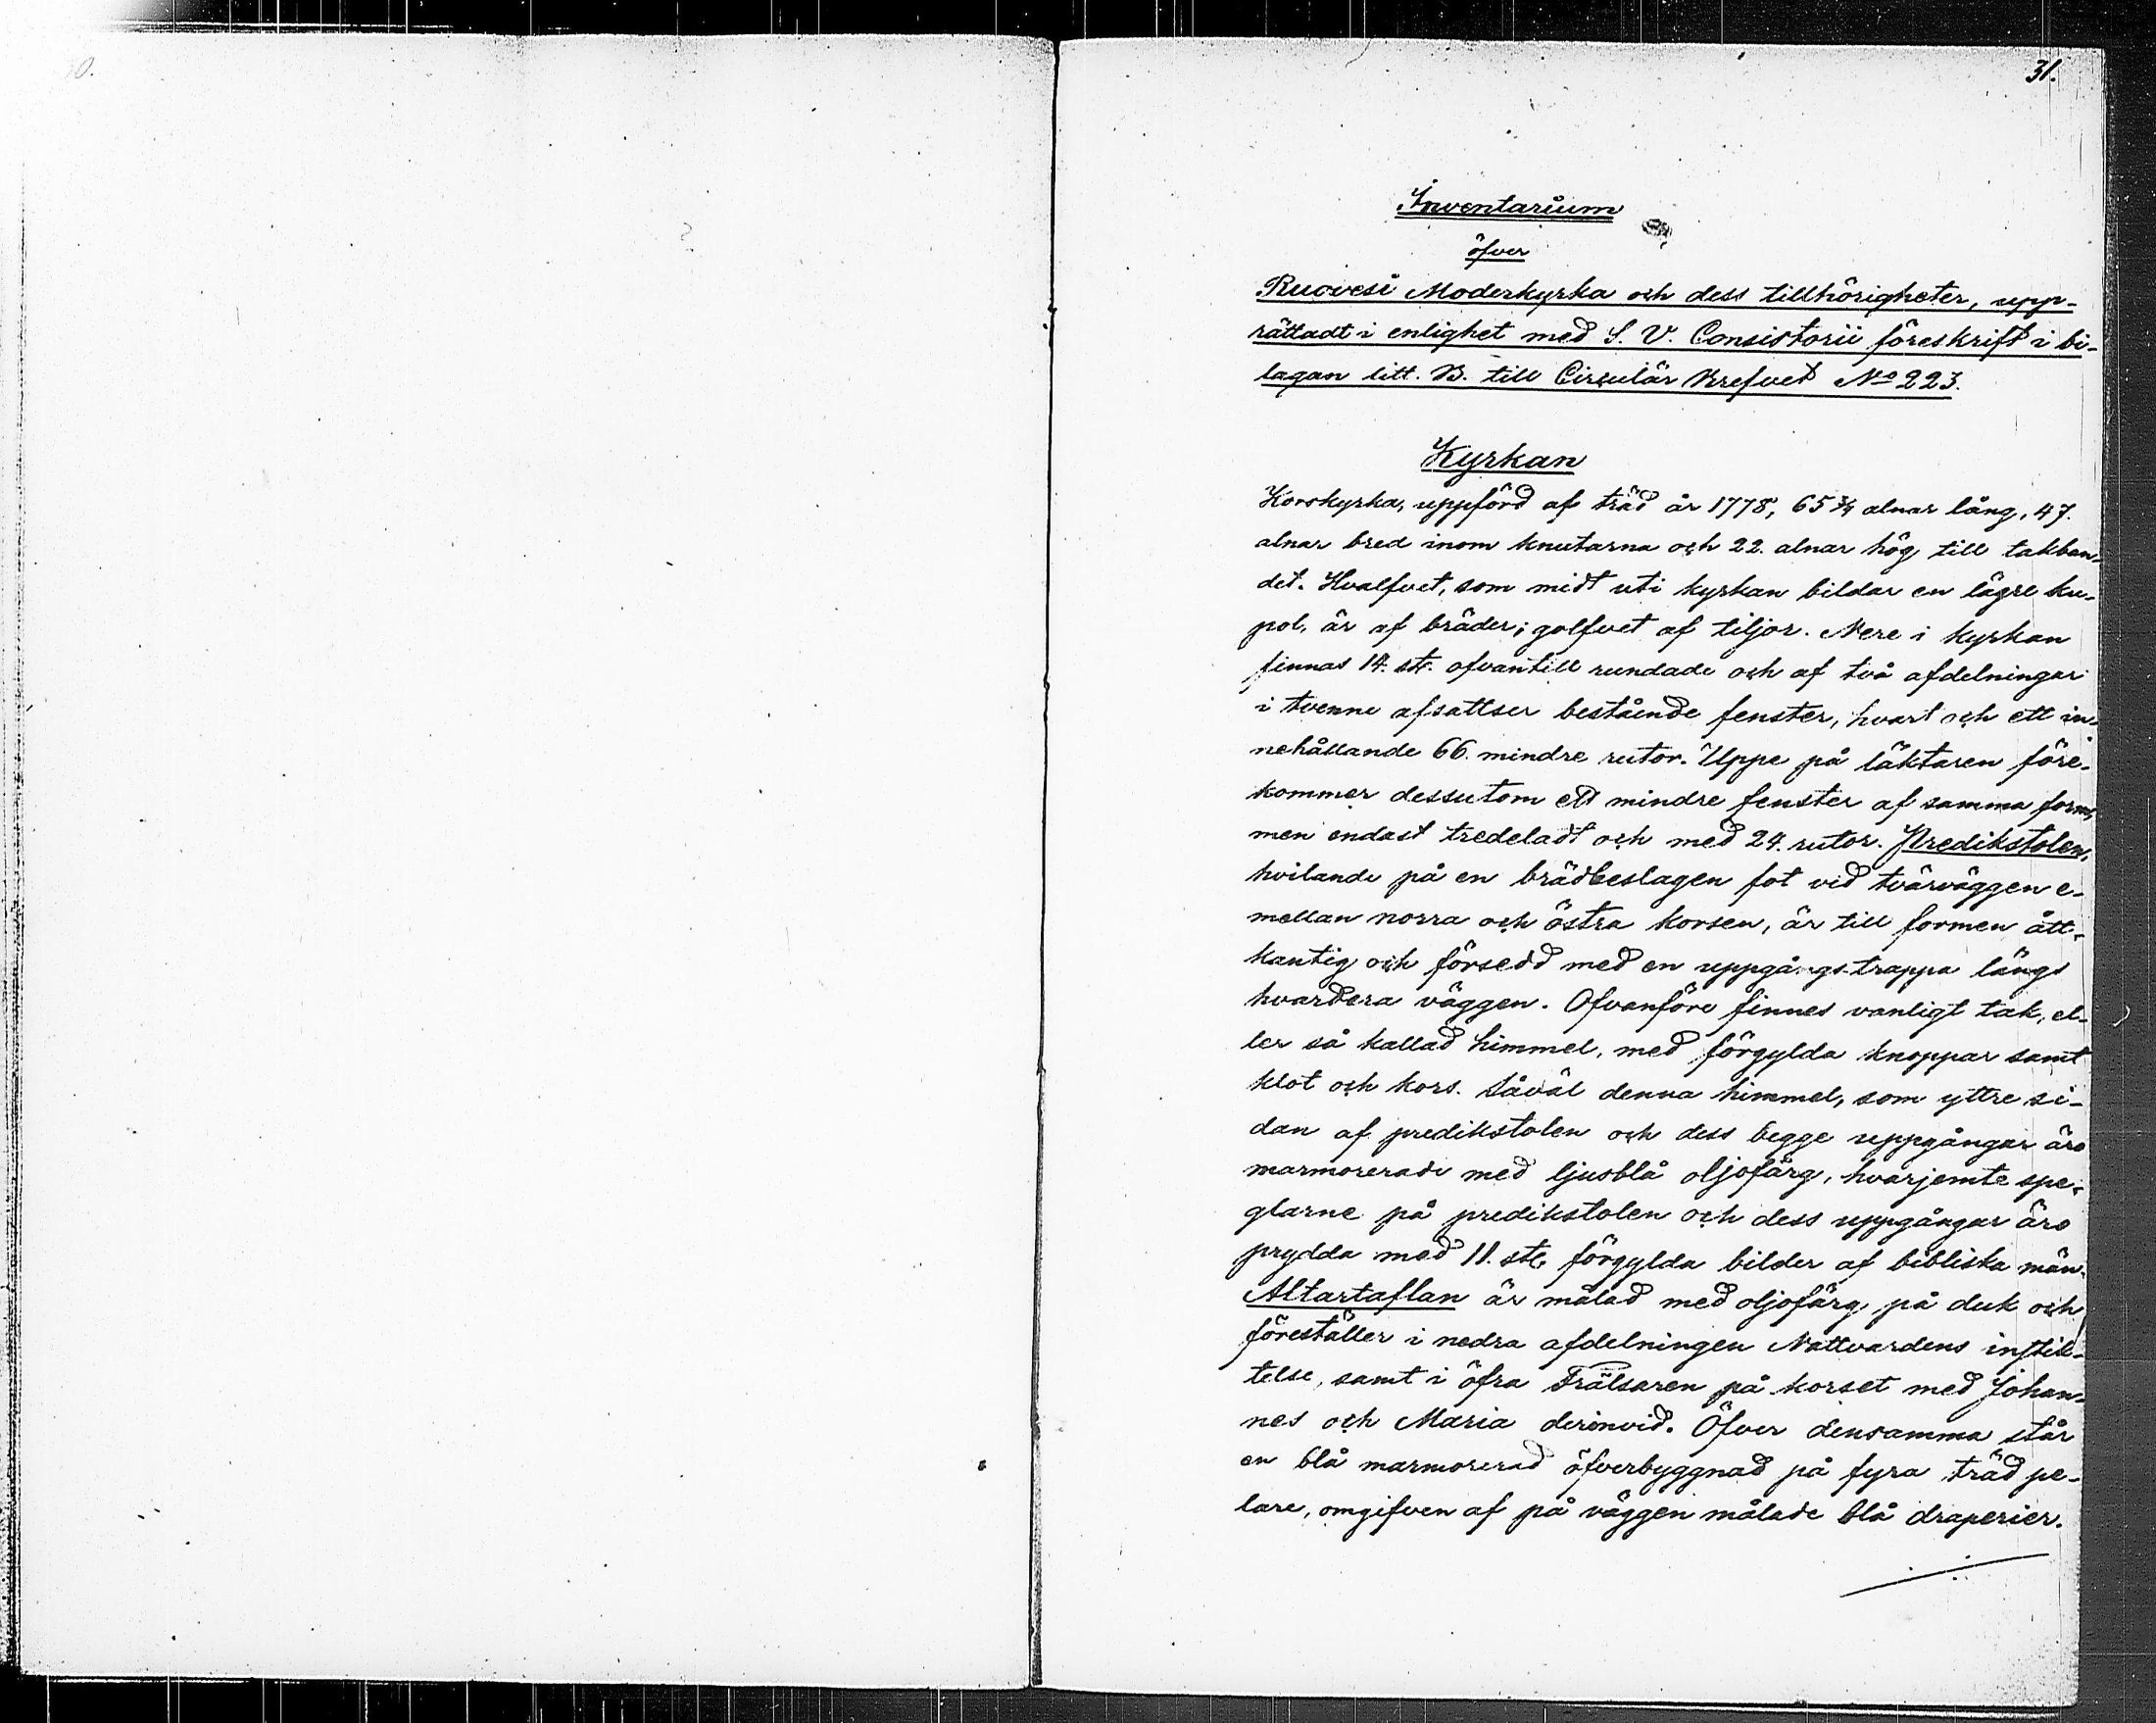 31.
Inventarium
öfver
Ruovesi Moderkyrka och dess tillhörigheter, upp-
rättadt i enlighet med S. V. Consistorii föreskrift i bi-
lagan litt. B. till Circulär Brefvet No 223.
Kyrkan
Korskyrka, uppförd af träd år 1778, 65 3/4 alnar lång, 47.
alnar bred inom knutarna och 22. alnar hög till takban-
det. Hvalfvet, som midt uti kyrkan bildar en lägre ku-
pol, är af bräder; golfvet af tiljor. Nere i kyrkan
finnas 14. st. ofvantill rundade och af två afdelningar
i tvenne afsattser bestående fenster, hvart och ett in-
nehållande 66. mindre rutor. Uppe på läktaren före-
kommer dessutom ett mindre fenster af samma form,
men endast tredeladt och med 24. rutor. Predikstolen,
hvilande på en brädbeslagen fot vid tvärväggen e-
mellan norra och östra korsen, är till formen ått-
kantig och försedd med en uppgångstrappa längs
hvardera väggen. Ofvanföre finnes vanligt tak, el-
ler så kallad himmel, med förgylda knoppar samt
klot och kors. Såväl denna himmel, som yttre si-
dan af predikstolen och dess begge uppgångar äro
marmorerade med ljusblå oljofärg, hvarjemte spe-
glarne på predikstolen och dess uppgångar äro
prydda med 11. st. förgylda bilder af bibliska män.
Altartaflan är målad med oljofärg på duk och
föreställer i nedra afdelningen Nattvardens instik-
telse, samt i öfra Frälsaren på korset med Johan-
nes och Maria derinvid. Öfver densamma står
en blå marmorerad öfverbyggnad på fyra träd pe-
lare, omgifven af på väggen målade blå draperier.